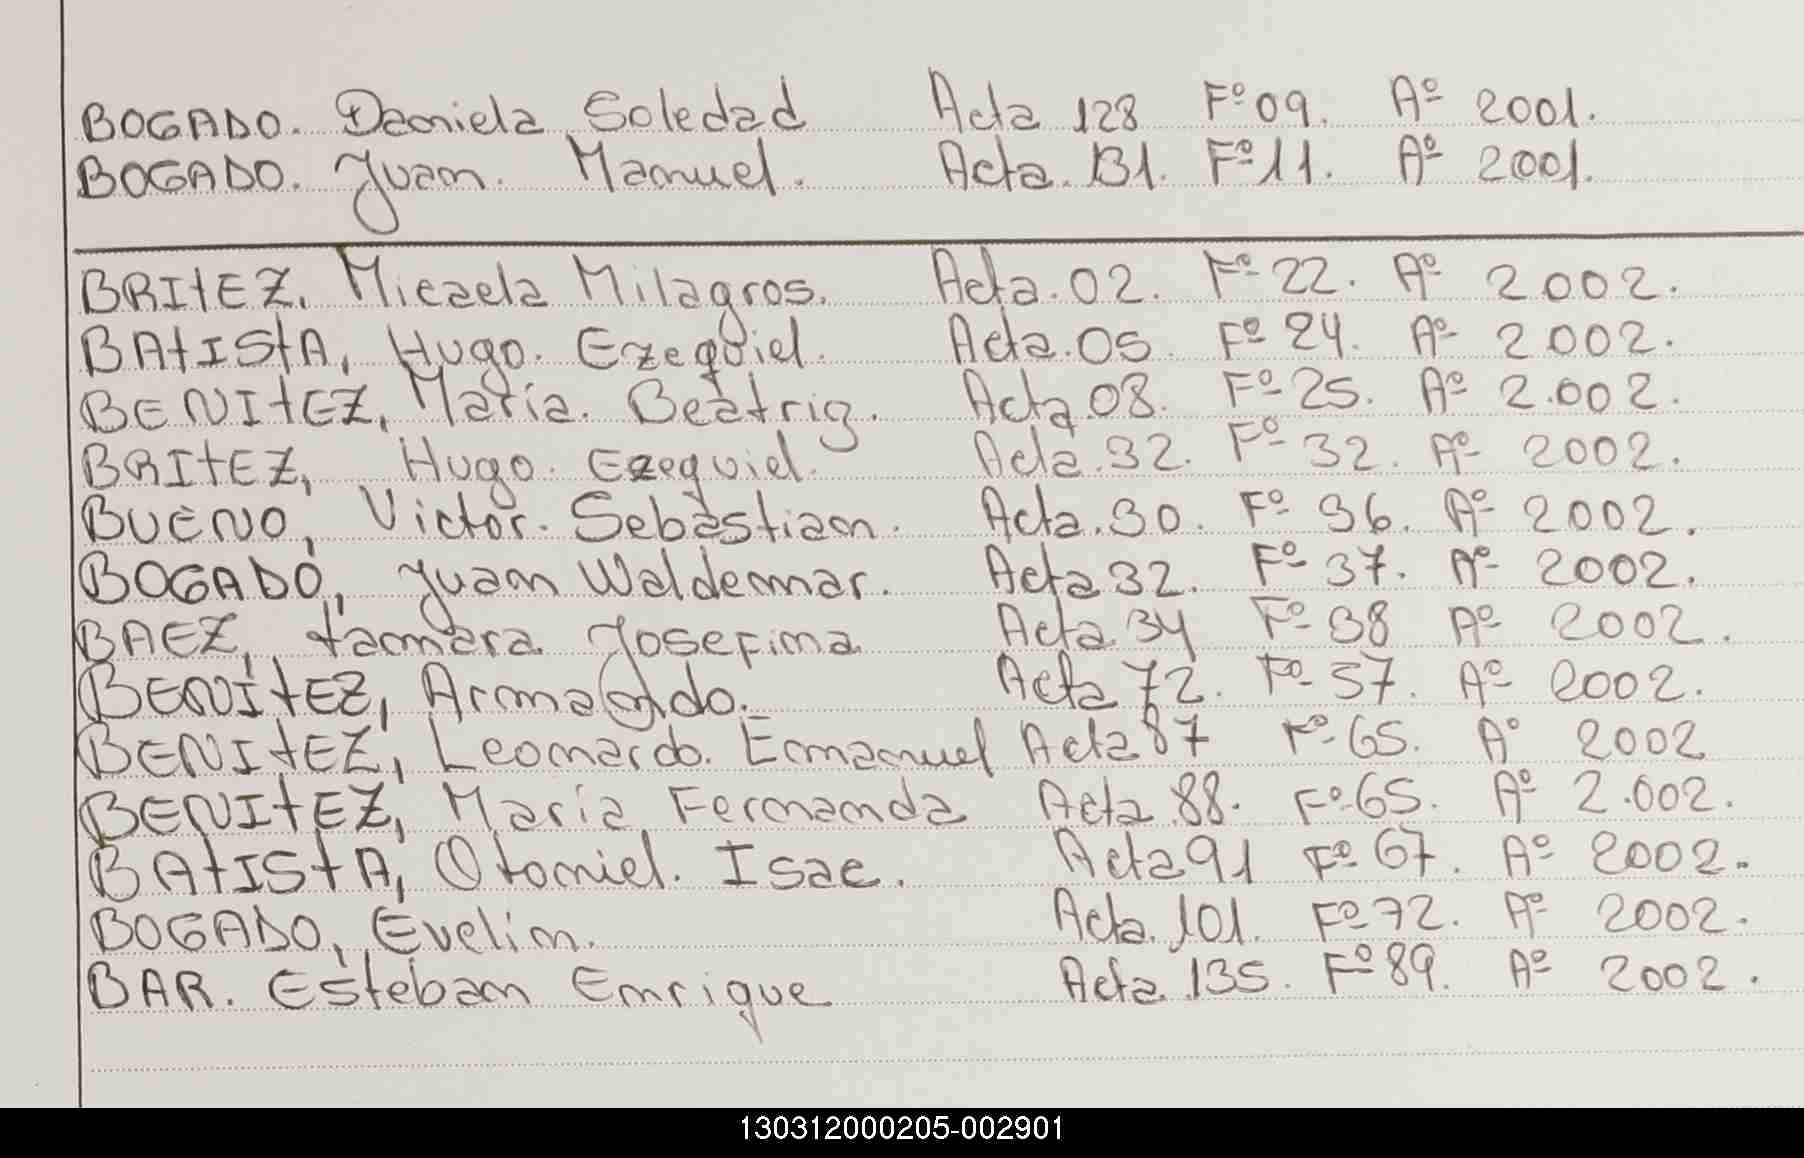 BOGADO. Daniela Soledad Acta 128 Fº 09. Aº 2001.
BOGADO. Juan. Manuel. Acta. 131. Fº 11. Aº 2001.
BRITEZ, Micaela Milagros. Acta. 02. Fº 22. Aº 2002.
BATISTA, Hugo. Ezequiel. Acta. 05. Fº 24. Aº 2002.
BENITEZ, María. Beatriz. Acta 08. Fº 25. Aº 2.002.
BRITEZ, Hugo. Ezequiel. Acta. 32. Fº 32. Aº 2002.
BUENO, Victor. Sebastian. Acta. 30. Fº 36. Aº 2002.
BOGADO, Juan Waldemar. Acta 32. Fº 37. Aº 2002.
BAEZ, Tamara Josefina Acta 34 Fº 38 Aº 2002.
BENITEZ, Armando. Acta 72. Fº 57. Aº 2002.
BENITEZ, Leonardo. Emanuel Acta 87 Fº 65. Aº 2002
BENITEZ, Maria Fernanda Acta 88. Fº 65. Aº 2.002.
BATISTA, Otoniel. Isac. Acta 91 Fº 67. Aº 2002.
BOGADO, Evelin. Acta. 101. Fº 72. Aº 2002.
BAR. Esteban Enrique Acta. 135. Fº 89. Aº 2002.
130312000205-002901